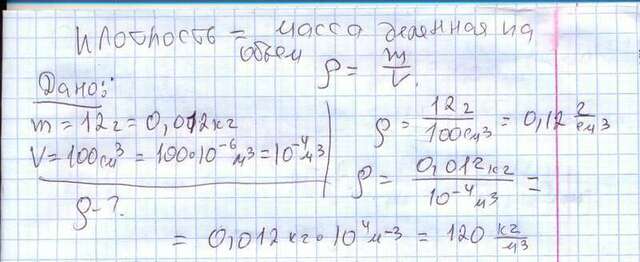 Плотность = масса деленная на
объем ρ = m/V.
Дано:
m = 12 г = 0,012 кг
V = 100 см³ = 100·10⁻⁶ м³ = 10⁻⁴ м³
ρ - ?
ρ = 12 г / 100 см³ = 0,12 г/см³
ρ = 0,012 кг / 10⁻⁴ м³ =
= 0,012 кг · 10⁴ м⁻³ = 120 кг/м³